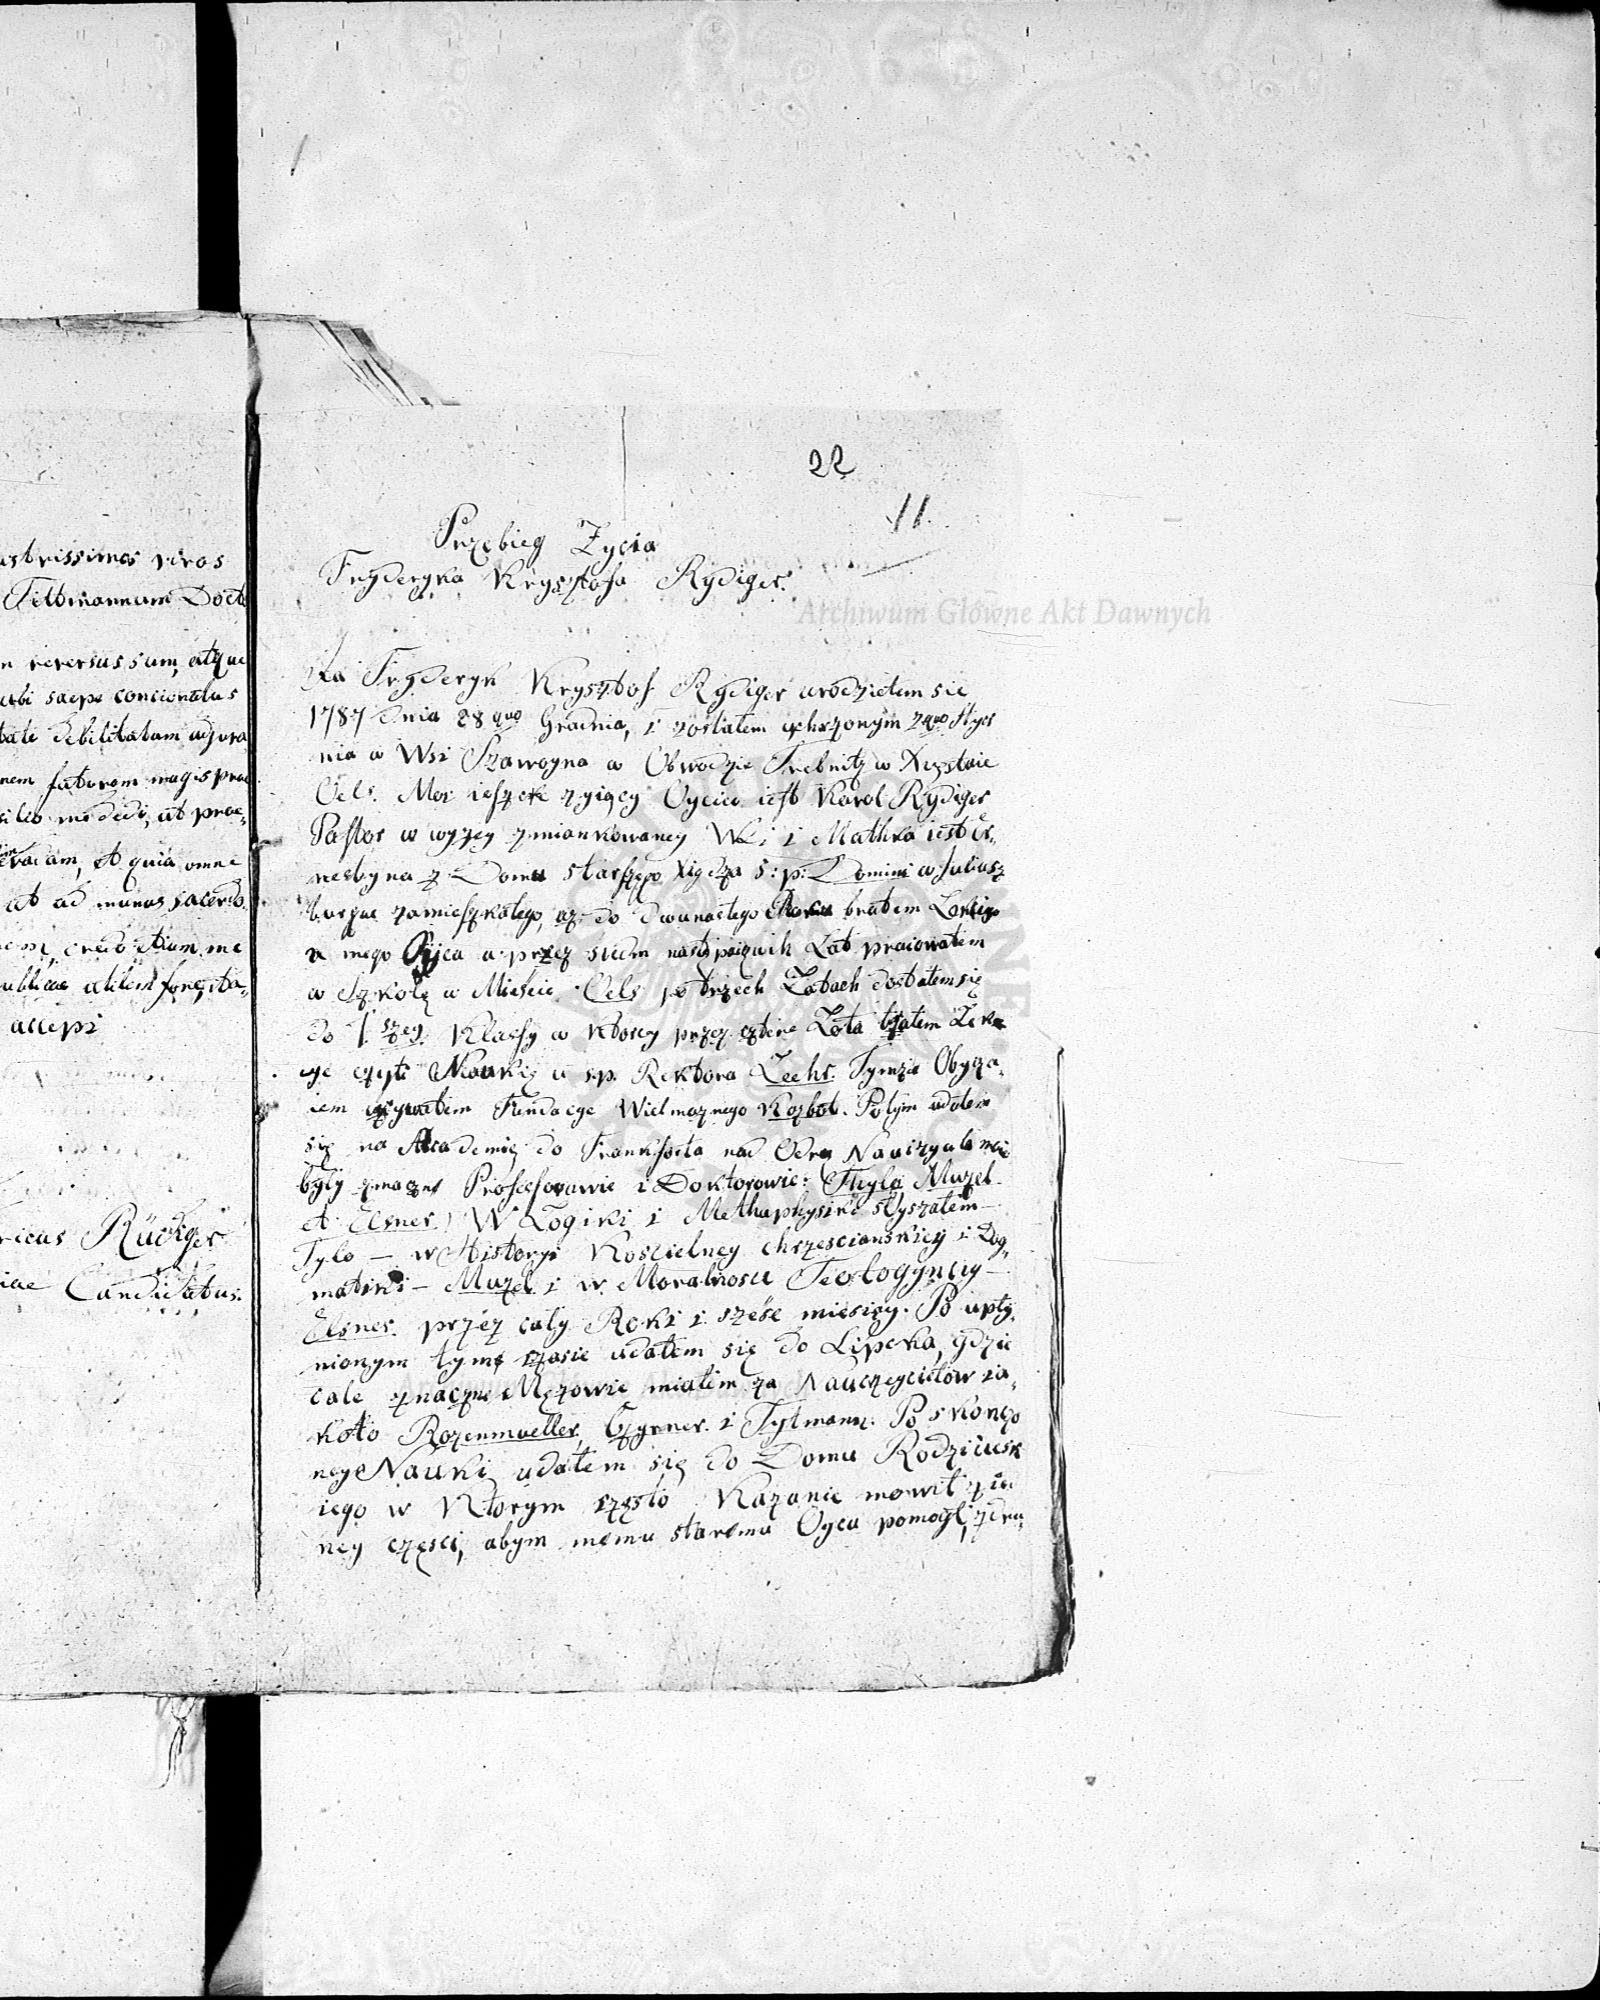 ustrissimos viros
Tittmannum Doct
n reversus sum, atque
ubi saepe concionatus
tate debilitatum adjuva
nem futurum magis prae
at prae,
et quia omne
at ad munus sacerdo,
credo etiam me
utilem fore, ita,
accepi
ricus Rüdiger
iae Candidatus.
22
11.
Przebieg Zycia
Fryderyka Krysztofa Rydiger.
Archiwum Główne Akt Dawnych
Ja Fryderyk Krysztof Rydiger urodziełem sie
1787 dnia 28 guo Grudnia, i zostałem ochrzonym 7guo Stycz
nia w Wsi Szawoyna w Obwodzie Trebnitz w Xięstwie
Oels. Moi ieszcze zyiący Oyciec iest Karol Rydiger
Pastor w wyzey zmiankowaney Wsi i Mathka iest Er,
nestyna z Domu starszego Xiędza ś: p: Domini w Juliusz
burgu zamieszkałego, az do dwunastego Roku bratem Lekcige
u mego Oyca a przez siedm nastepuiących Lat pracowałem
w Szkole w Mieście Oels po trzech Latach dostałem się
do 1. szey Klassy w Ktorey przez cztere Lata brałem Lek
cye czyli Nauki u s.p. Rektora Zechr. Tymże Obycza,
iem uzywałem Fundacye Wielmaznego Kozbot. Potym udałem
się na Akademię do Frankforta nad Odrą Nauczyciele moie
byly znaczne Professorawie i Doktorowie: Thyle Muzel
et Elsner. W Logiki i Methaphysiki słyszałem –
Tyle – w Historyi Koscielney chrzescianskiey i Dog,
matiki – Muzel i w Moralnosci Teologyney –
Elsner. przez cały Roki i sześc miesięcy. Po upły,
nionym tyme czasie udałem się do Lipcka, gdzie
cale znaczne Męzowie miałem za Nauczycielow ia,
koto Rozenmueller, Czyrner. i Tytmann. Po skonczo
ney Nauki udałem się do Domu Rodzicielsk
iego w Ktorym często Kazanie mowił z ied
ney częsci, abym memu staremu Oycu pomogł, z dru,